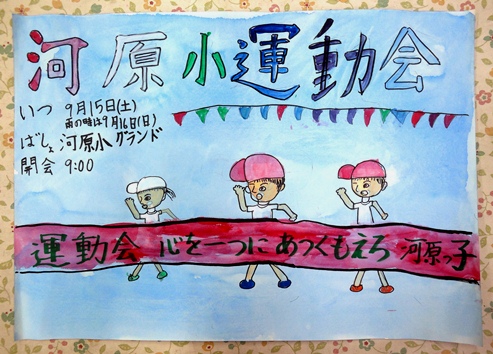 河原小運動会
いつ 9月15日(土)
雨の時は9月16日(日)
ばしょ 河原小グランド
開会 9:00
運動会 心を一つに あつくもえろ 河原っ子